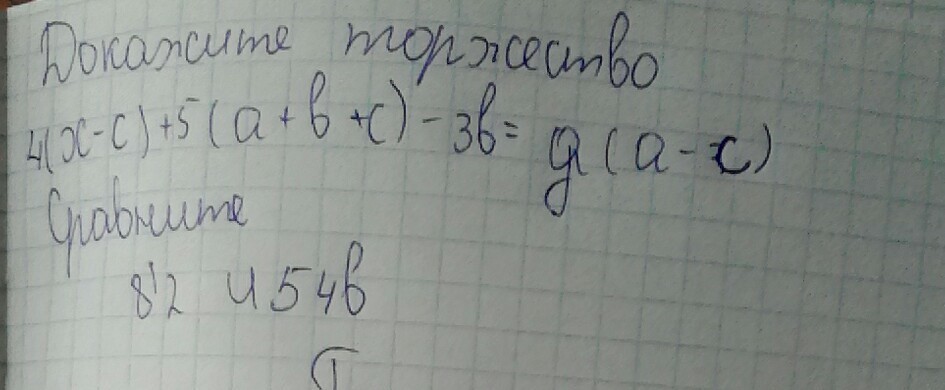 Докажите торжество
4(x-c)+5(a+b+c)-3b= g(a-c)
Сравните
8'2 и 54b